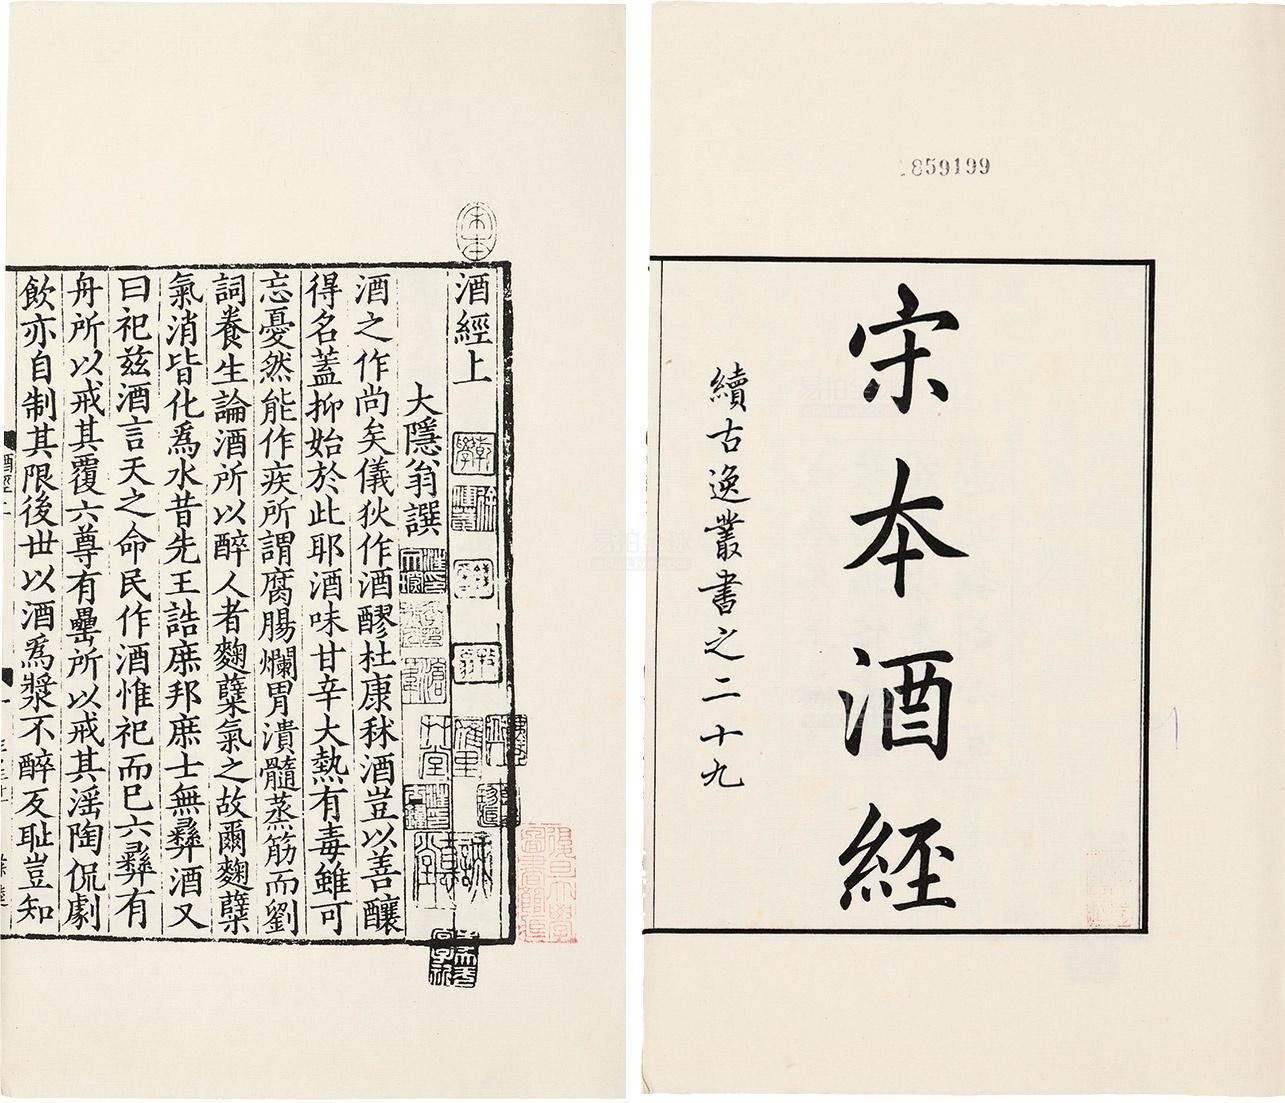 859199
宋本酒經
續古逸叢書之二十九
宋本
酒經上
大隱翁譔
酒之作尚矣儀狄作酒醪杜康秫酒豈以善釀
得名蓋抑始於此耶酒味甘辛大熱有毒雖可
忘憂然能作疾所謂腐腸爛胃潰髓蒸筋而劉
詞養生論酒所以醉人者麴蘖氣之故爾麴蘖
氣消皆化爲水昔先王誥庶邦庶士無彝酒又
曰祀茲酒言天之命民作酒惟祀而已六彝有
舟所以戒其覆六尊有罍所以戒其淫陶侃劇
飲亦自制其限後世以酒爲漿不醉反恥豈知
復旦大學
圖書館藏